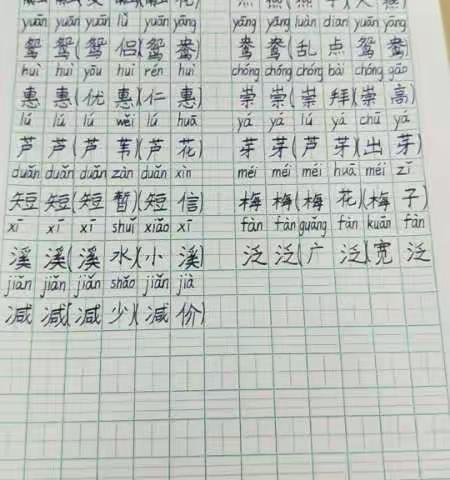 yuān yuān yuān lǚ yuān yāng yāng yāng luàn diǎn yuān yāng
鸳 鸳(鸳 侣)(鸳 鸯) 鸯 鸯(乱 点 鸳 鸯)
huì huì yōu huì rén huì chóng chóng chóng bài chóng gāo
惠 惠(优 惠)(仁 惠) 崇 崇(崇 拜)(崇 高)
lú lú lú wěi lú huā yá yá lú yá chū yá
芦 芦(芦 苇)(芦 花) 芽 芽(芦 芽)(出 芽)
duǎn duǎn duǎn zàn duǎn xìn méi méi méi huā méi zǐ
短 短(短 暂)(短 信) 梅 梅(梅 花)(梅 子)
xī xī xī shuǐ xiǎo xī fàn fàn guǎng fàn kuān fàn
溪 溪(溪 水)(小 溪) 泛 泛(广 泛)(宽 泛
jiǎn jiǎn jiǎn shǎo jiǎn jià
减 减(减 少)(减 价)